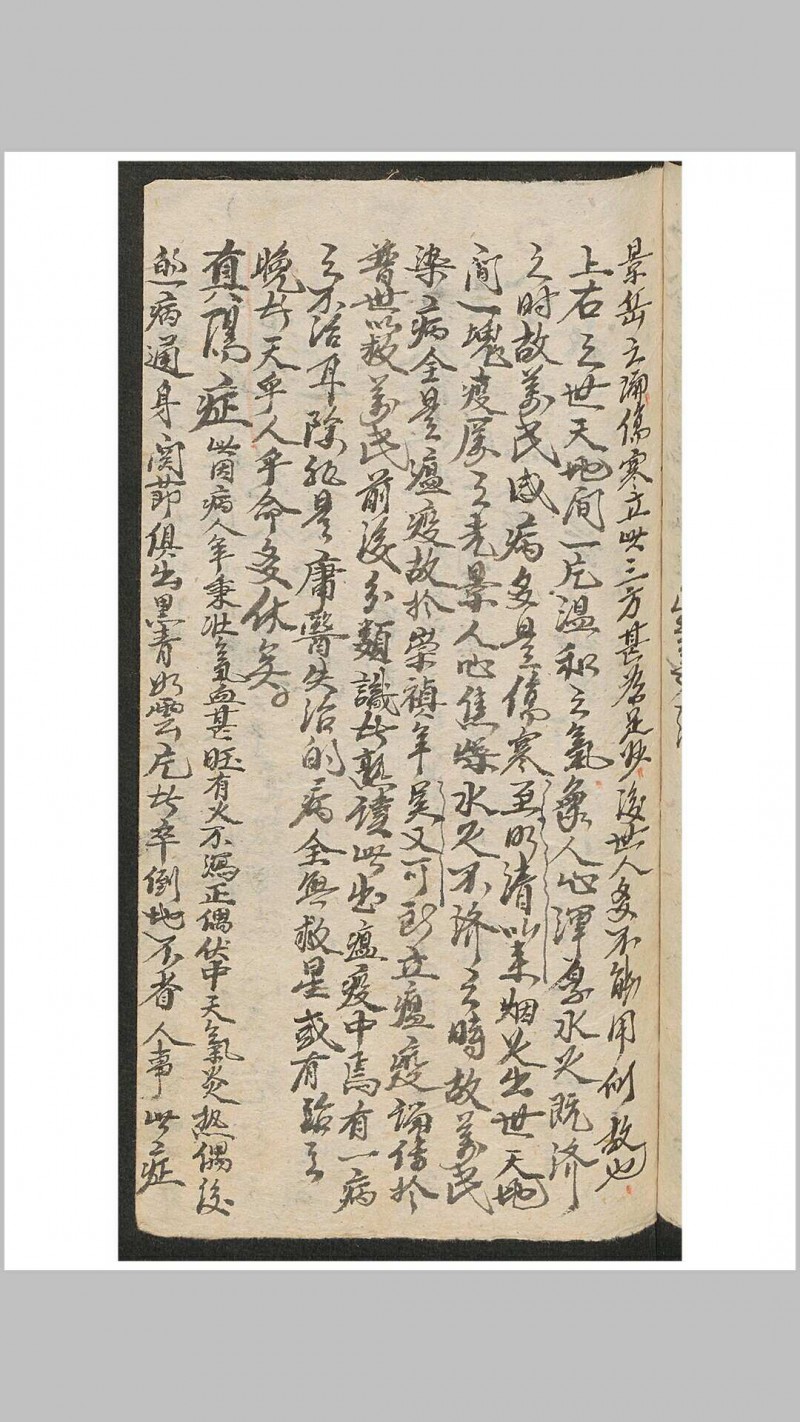 景岳云論傷寒立此三方甚為足妙後世人多不能用何故也
上古之世天地間一片溫和之氣象人心渾厚水火既濟
之時故萬民感病多是傷寒至明清以来烟火出世天地
间一塊疫厲之光景人心焦燥水火不濟之時故萬民
染病全是瘟疫故於崇禎年吴又可所立瘟疫論傳於
普世以救萬民前後分類識者熟讀此書瘟疫中焉有一病
之不治耳除非是庸醫失治的病全無救星或有治之
晚者天乎人乎命多休矣
真陽症 此因病人年秉壯氣血甚旺有火不瀉正偶伏中天氣炎热偶後
病通身関節俱出黑青如雲片者卒倒地不省人事此症